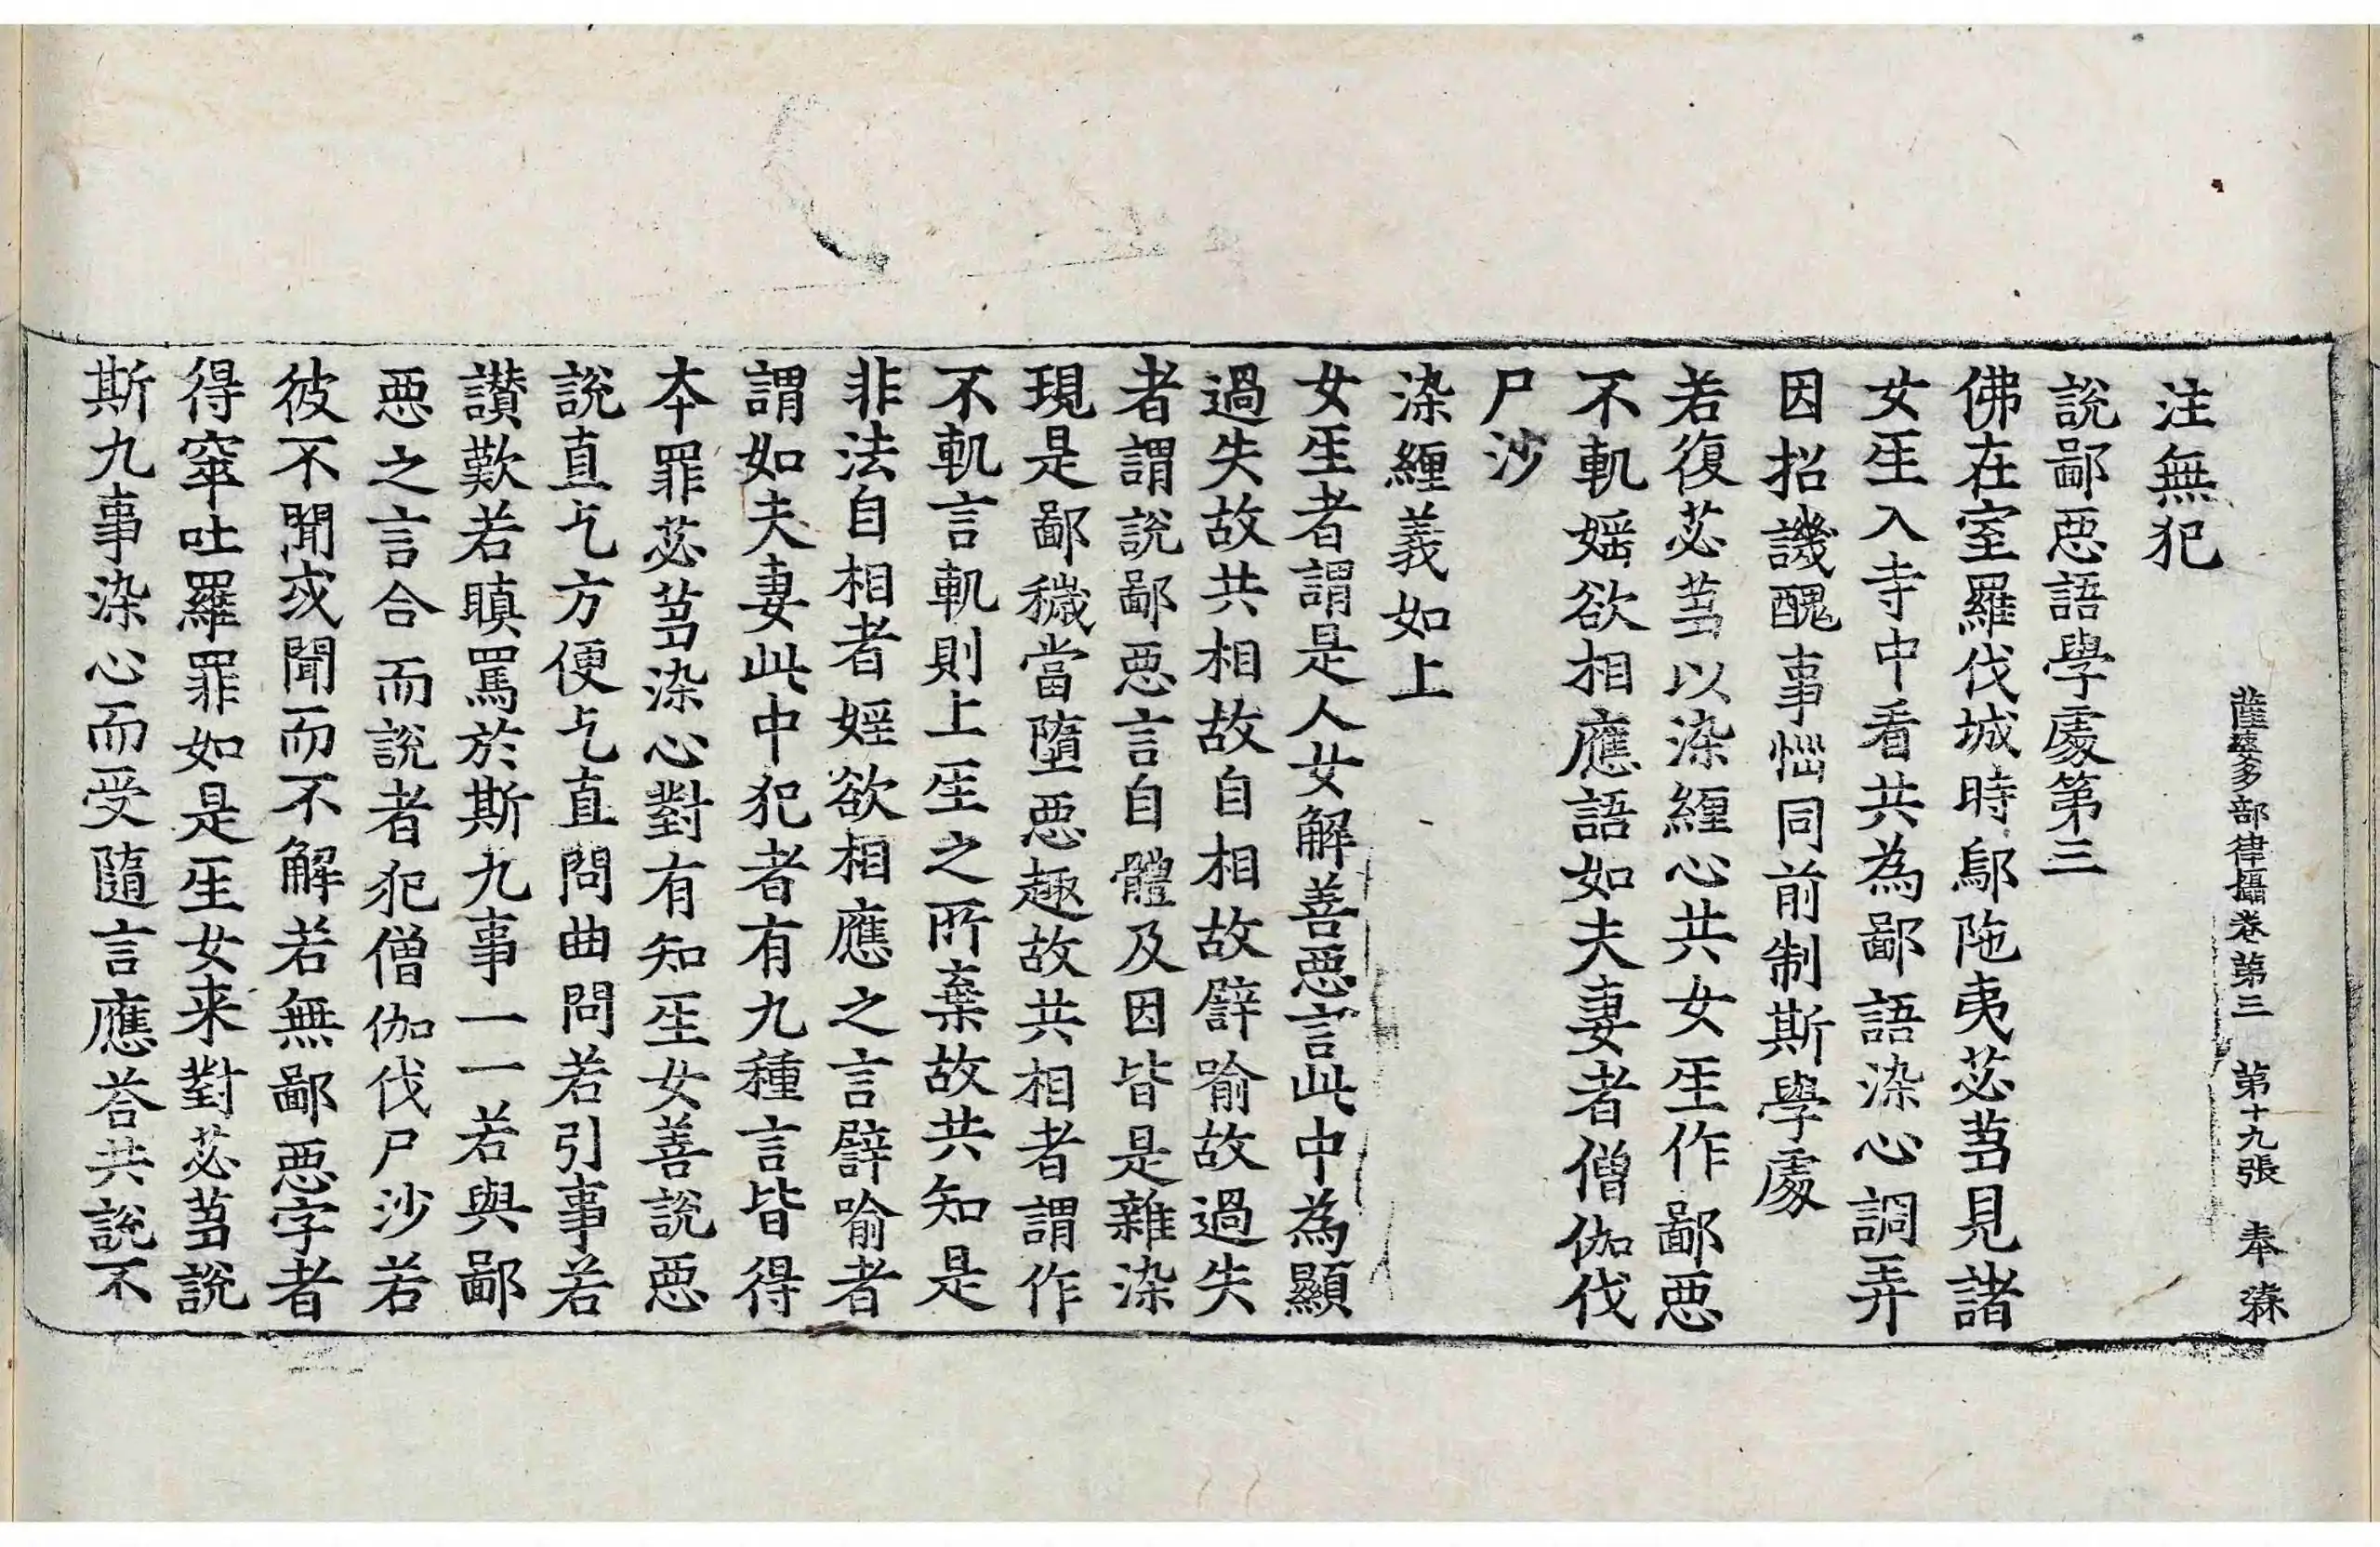 薩婆多部律攝卷第三　第十九張　奉㷛
注無犯
說鄙惡語學處第三
佛在室羅伐城時鄔陁夷苾蒭見諸
女𤯔入寺中看共為鄙語染心調弄
因招譏醜事惱同前制斯學處
若復苾蒭以染纏心共女𤯔作鄙惡
不軌婬欲相應語如夫妻者僧伽伐
尸沙
染纏義如上
女𤯔者謂是人女解善惡言此中為顯
過失故共相故自相故譬喻故過失
者謂說鄙惡言自體及因皆是雜染
現是鄙穢當墮惡趣故共相者謂作
不軌言軌則上𤯔之所棄故共知是
非法自相者婬欲相應之言譬喻者
謂如夫妻此中犯者有九種言皆得
本罪苾蒭染心對有知𤯔女善說惡
說直乞方便乞直問曲問若引事若
讚歎若瞋罵於斯九事一一若與鄙
惡之言合而說者犯僧伽伐尸沙若
彼不聞或聞而不解若無鄙惡字者
得窣吐羅罪如是𤯔女来對苾蒭說
斯九事染心而受隨言應荅共說不